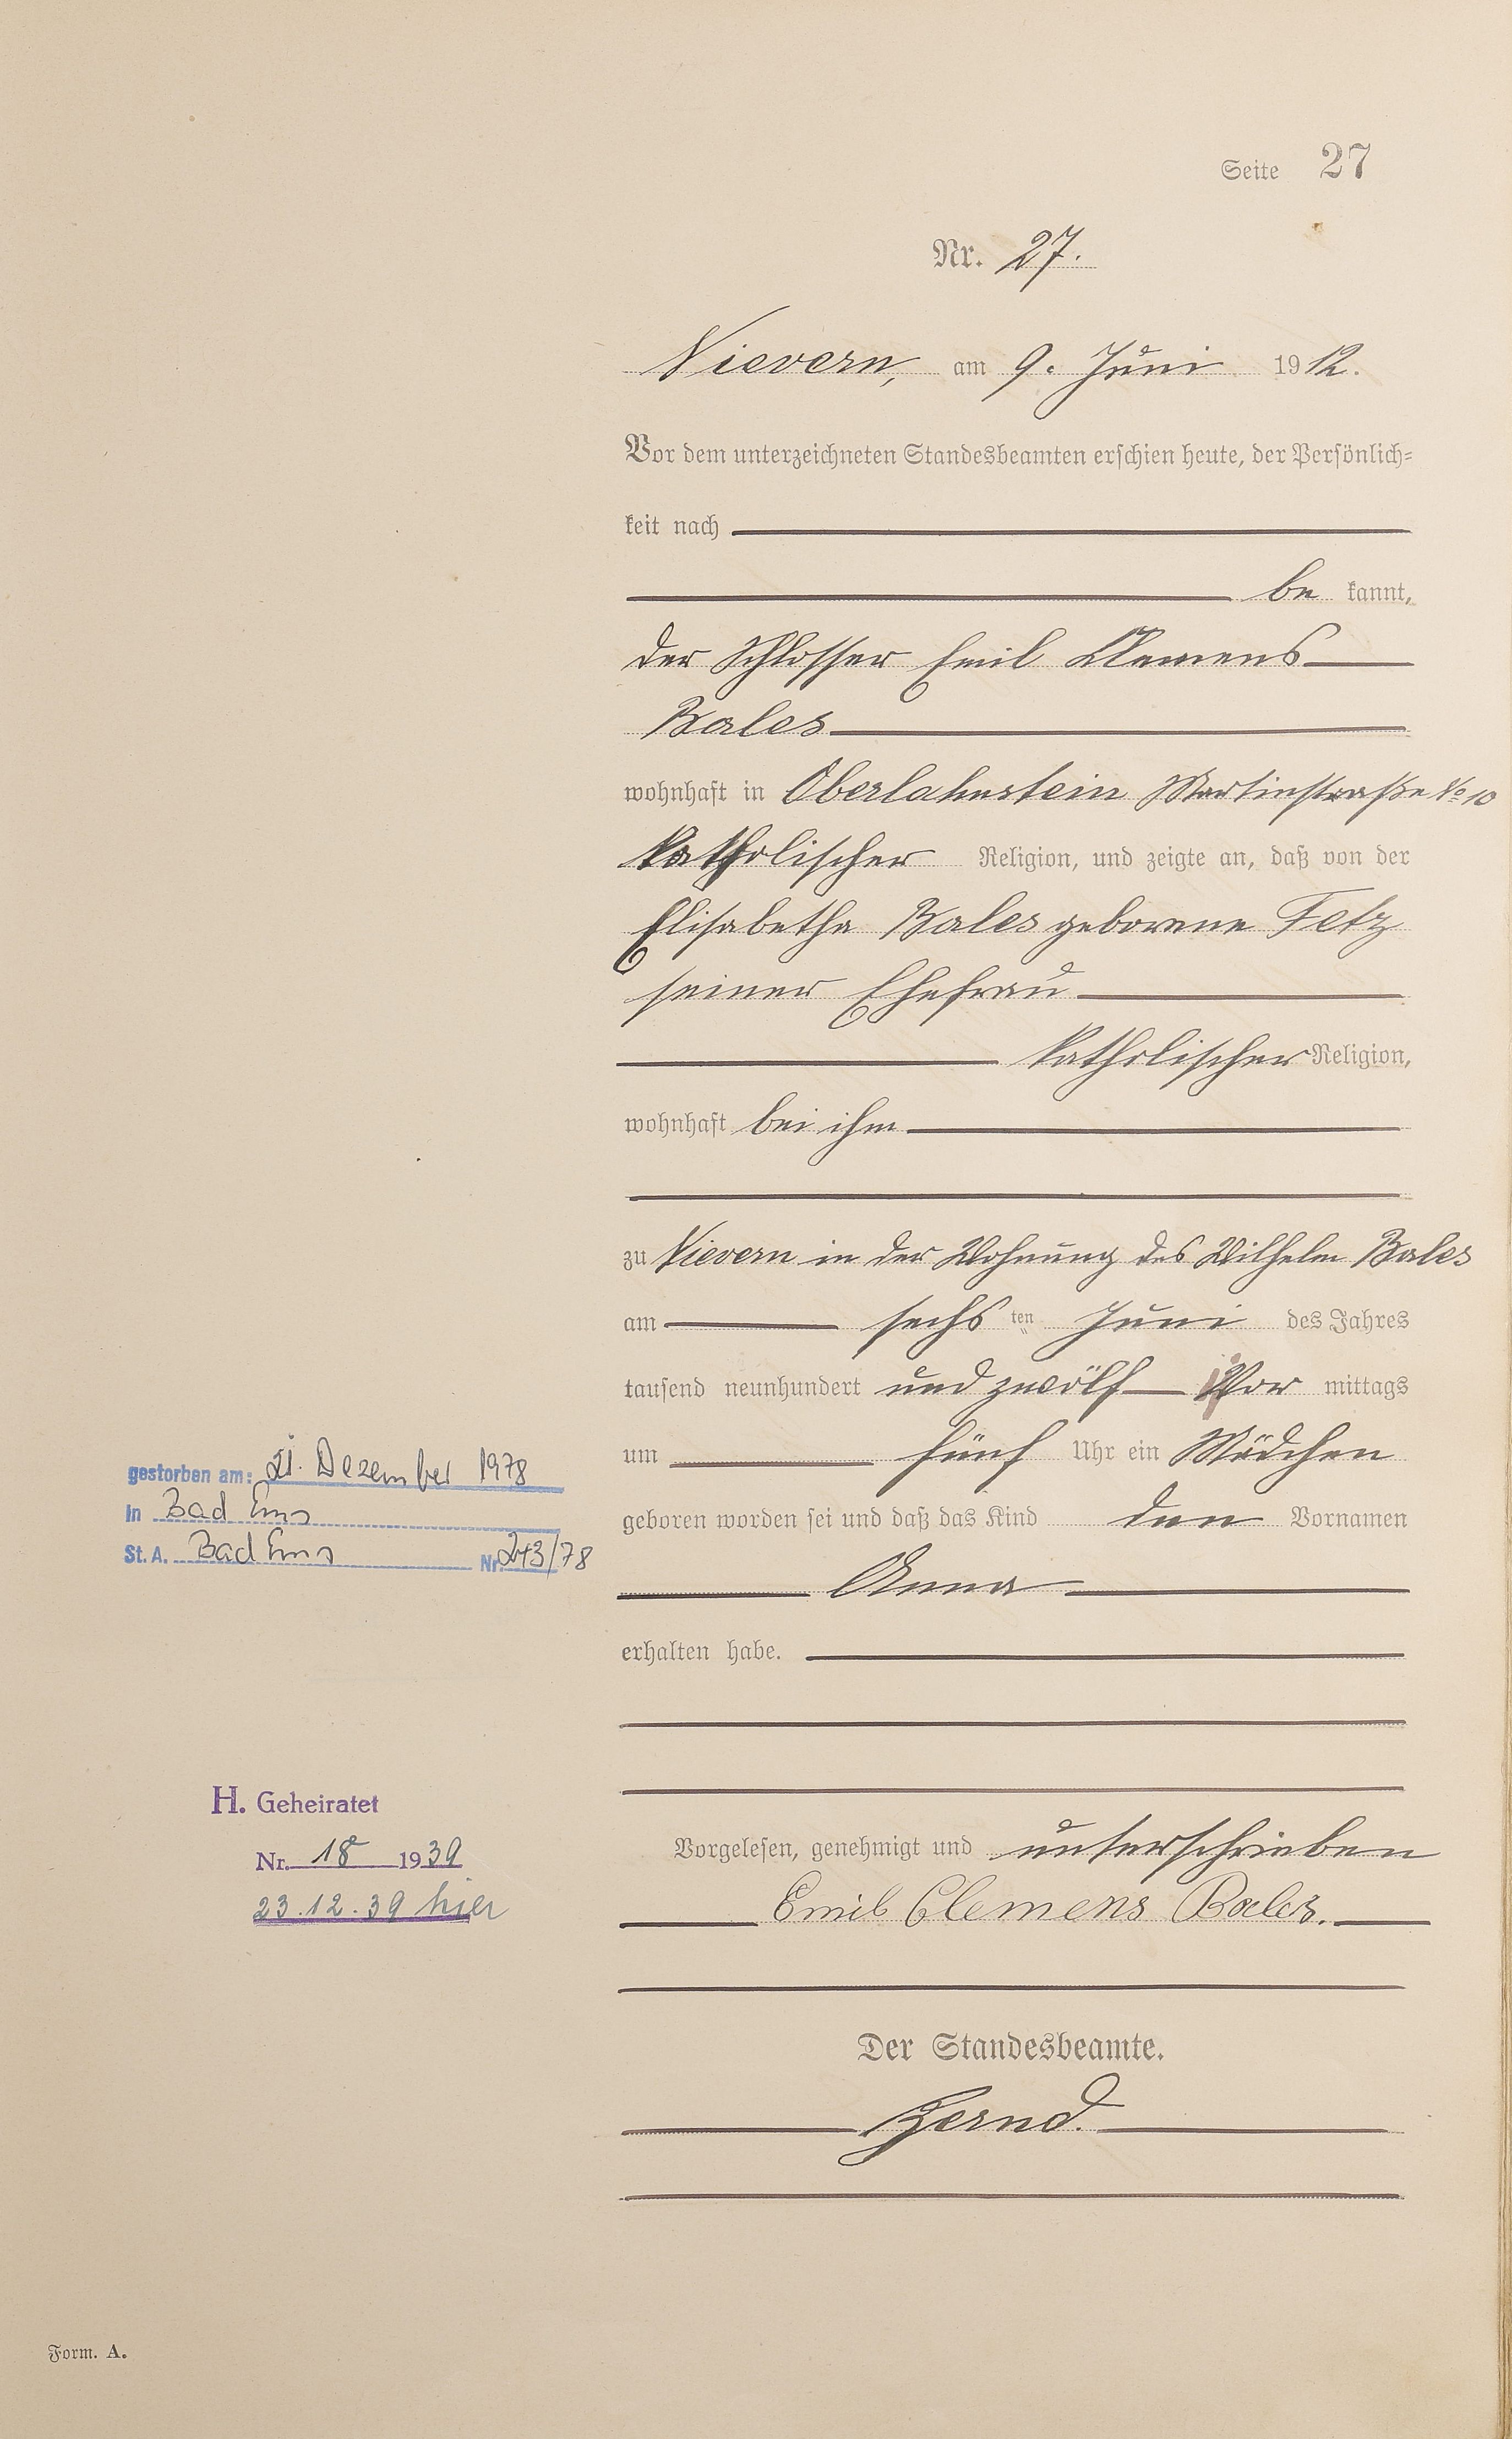 Seite 27
Nr. 27.
Nievern, am 9. Juni 1912.
Vor dem unterzeichneten Standesbeamten erschien heute, der Persönlich=
keit nach
be kannt,
der Schlosser Emil Klemens
Bales
wohnhaft in Oberlahnstein Martinstraße No 10
katholischer Religion, und zeigte an, daß von der
Elisabetha Bales geborene Fetz
seiner Ehefrau
katholischer Religion,
wohnhaft bei ihm
zu Nievern in der Wohnung des Wilhelm Bales
am sechs ten Juni des Jahres
tausend neunhundert und zwölf Vor mittags
um fünf Uhr ein Mädchen
geboren worden sei und daß das Kind den Vornamen
Anna
erhalten habe.
gestorben am: 21. Dezember 1978
In Bad Ems
St. A. Bad Ems Nr. 243/78
H. Geheiratet
Nr. 18 1939
23.12.39 hier
Vorgelesen, genehmigt und unterschrieben
Emil Clemens Bales.
Der Standesbeamte.
Form. A.